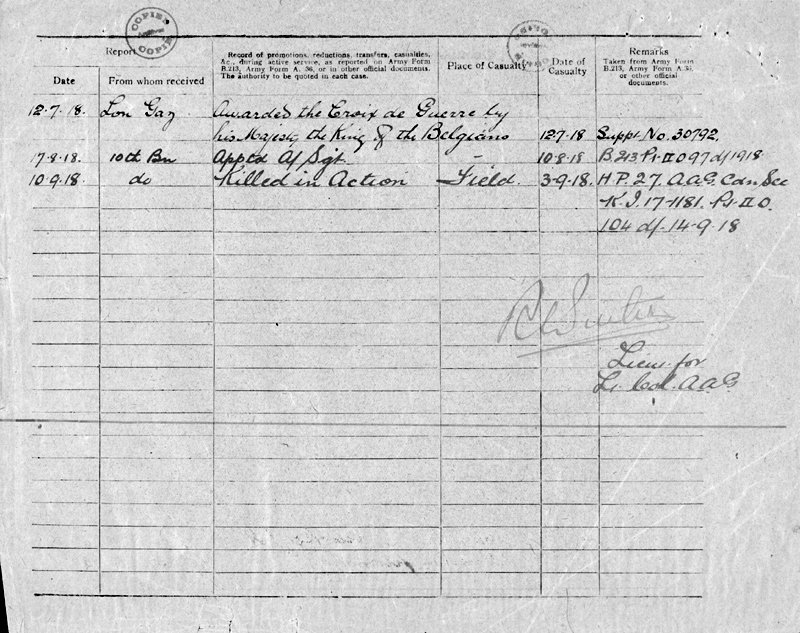 COPIED
COPIED
Report
Record of promotions, reductions, transfers, casualties,
&c., during active service, as reported on Army Form
B.213, Army Form A. 36, or in other official documents.
The authority to be quoted in each case.
Place of Casualty
Date of
Casualty
Remarks
Taken from Army Form
B.213, Army Form A. 36,
or other official
documents.
Date
From whom received
12·7·18. Lon Gaz Awarded the Croix de Guerre by
his Majesty the King of the Belgians 12·7·18 Suppt. No. 30792.
17·8·18. 10th Bn Apptd A/Sgt. - 10·8·18 B.213 Pt II O 97 d/ 1918
10·9·18. do Killed in Action Field. 3·9·18. H.P. 27. A.A.G. Cdn Sec
K.I. 17-1181. Pt II O.
104 d/. 14·9·18
Lieut for
Lt. Col. A.A.G.